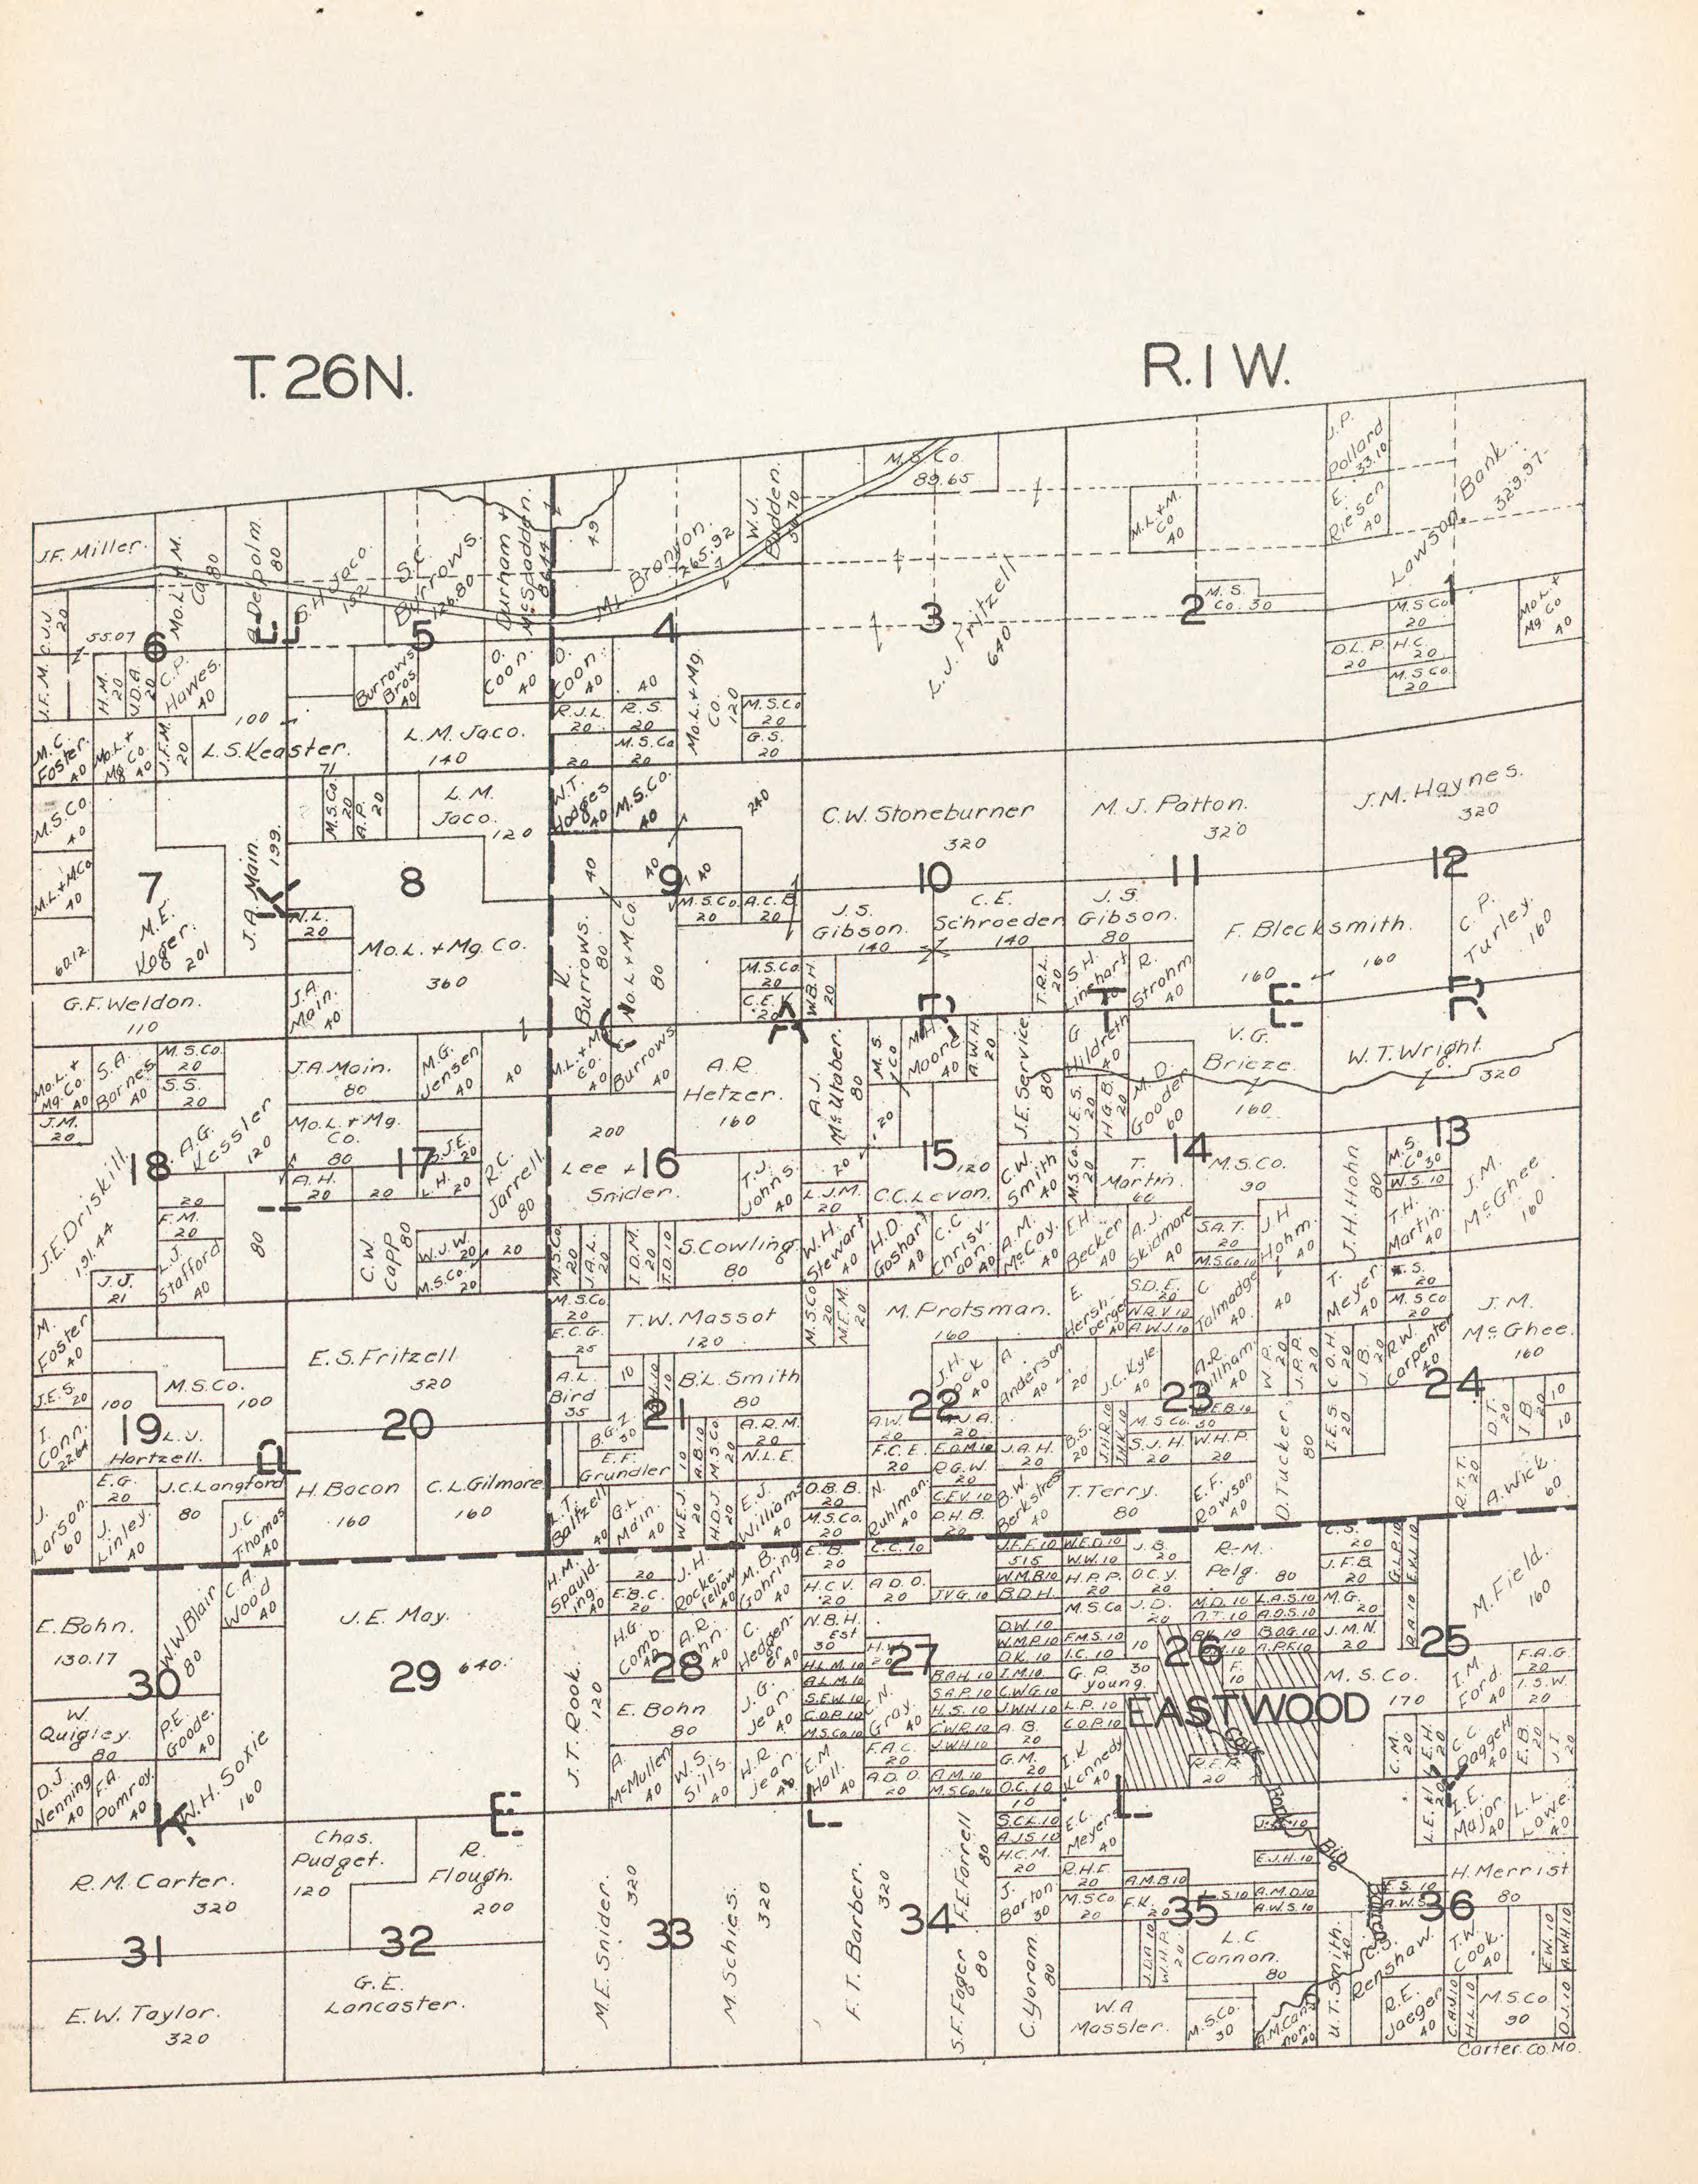 T. 26 N.
R. 1 W.
J.F. Miller.
Mo. L. & M.
Co. 80
80
S.H. Jaco.
152
S.C.
Burrows.
126.80
Durham &
McSpadden.
49
M.L. Branson.
265.92
W.J.
M.S. Co.
89.65
J.P.
Pollard
33.10
E.
Riesen
40
Lawson Bank.
329.97
M.L. & M.
Co
40
M.S.
Co. 30
M.S. Co
20
Mo. L. &
Mg. Co
40
D.L.P.
20
H.C.
20
M.S. Co.
20
C.J.J.
20
55.07
6
5
4
3
2
1
J.F.M.
H.M.
20
J.D.A.
20
C.P.
Hawes.
40
Burrows
Bros
40
O.
Coon.
40
O.
Coon.
40
40
Mo. L. & Mg.
Co.
120
M.S. Co
20
G.S.
20
R.J.L.
20
R.S.
20
M.S. Co
20
20
L.J. Fritzell
640
M.C.
Foster.
40
Mo. L. &
Mg Co.
40
J.F.M.
20
100
L.S. Keaster.
71
L.M. Jaco.
140
M.S. Co
40
M.S. Co.
20
A.P.
20
L.M.
Jaco.
120
W.T.
Hodges
40
M.S. Co.
40
240
C.W. Stoneburner
320
M.J. Patton.
320
J.M. Haynes.
320
M.L. & M. Co
40
7
J.A. Main.
199.
8
40
40
9
40
10
11
12
60.12
M.E.
Koger.
201
N.L.
20
Mo. L. & Mg. Co.
360
K.
Burrows.
80
Mo. L & M Co.
80
M.S. Co.
20
A.C.B.
20
J.S.
Gibson.
140
C.E.
Schroeder
140
J.S.
Gibson.
80
F. Blecksmith.
160
160
C.P.
Turley.
160
G.F. Weldon.
110
J.A.
Main.
40
M.S. Co.
20
C.E.K.
20
W.B.H.
20
T.R.L.
20
S.H.
Linehart
R.
Strohm
40
Mo. L. &
Mg. Co.
40
S.A.
Barnes
40
M.S. Co.
20
S.S.
20
J.A. Main.
80
M.G.
Jensen
40
40
M.L. & M
Co.
40
Burrows
40
A.R.
Hetzer.
160
A.J.
80
M.S.
Co
20
M.H.
Moore
40
A.W.H.
20
J.E. Service
80
G
Hildreth
40
V.G.
Brieze.
160
W.T. Wright.
320
J.M.
20
A.G.
Kessler
120
Mo. L. & Mg.
Co.
80
J.E.S.
20
H.G.B.
20
M.D.
Gooder
60
J.E. Driskill.
191.44
18
17
J.E.
20
L.H.
20
R.C.
Jarrell
80
200
Lee &
Snider.
16
T.J.
Johns.
40
20
L.J.M.
20
15
120
C.C. Levan.
C.W.
Smith
40
M.S. Co.
20
T.
Martin.
60
14
M.S. Co.
90
J.H. Hohn
80
M.S.
Co 30
W.S. 10
13
T.H.
Martin.
40
J.M.
McGhee
160
20
F.M.
20
L.J.
Stafford
40
80
A.H.
20
20
C.W
Capp
80
W.J.W.
20
M.S. Co.
20
20
M.S. Co.
20
J.A.L.
20
I.D.M.
20
T.D. 10
S. Cowling
80
W.H.
Stewart
40
H.D.
Goshart
40
C.C
Chrisv-
gan.
40
A.M.
McCay.
40
E.H.
Becker
40
A.J.
Skidmore
40
S.A.T.
20
M.S. Co 10
J.H
Hohm.
40
J.J.
21
M.
Foster
40
E.S. Fritzell
320
M.S. Co
20
E.C.G.
25
T.W. Massot
120
M.S. Co
20
M.E.M.
20
M. Protsman.
160
E
Hersh-
berger
40
S.D.E.
20
W.R.V. 10
A.W.J. 10
C
Talmadge
40
40
T.
Meyer
40
20
M.S. Co
20
J.M.
McGhee.
160
J.E.S. 20
100
M.S. Co.
100
A.L.
Bird
35
10
B.L. Smith
80
J.H.
40
A
Anderson
40
20
J.C. Kyle
40
A.R.
40
W.P.
20
J.P.P.
20
C.O.H.
20
J.B.
20
R.W.
Carpenter
40
I.
Conn.
22.64
19
L.J.
Hartzell.
20
B.G.I.
50
21
A.R.M.
20
N.L.E.
22
A.W.
20
20
23
M.S. Co.
30
24
E.F.
Grundler
10
A.B. 10
M.S Co
20
F.C.E.
20
E.O.M. 10
J.A.H.
20
B.S.
20
S.J.H.
20
W.H.P.
20
D. Tucker.
80
I.E.S.
20
D.T.
20
I.B.
20
10
10
J.
Larson.
60
E.G.
20
J.
Linley.
40
J.C. Langford
80
J.C.
Thomas
40
H. Bacon
160
C.L. Gilmore
160
L.T.
Baltzell
40
G.L.
Main.
40
W.E.J.
20
H.D.J.
20
E.J.
Williams
40
O.B.B.
20
M.S. Co.
20
N.
Ruhlman.
40
R.G.W.
20
C.E.V. 10
P.H.B.
20
B.W.
40
T. Terry.
80
E.F.
Rawson
40
R.T.T.
20
A. Wick.
60
E. Bohn.
130.17
W.W. Blair
80
C.A.
Wood
40
J.E. May.
640
H.M.
Spauld-
ing.
40
20
E.B.C.
20
J.H.
Rocke-
fellow
40
M.B.
Gohring
40
E.B.
20
H.C.V.
20
C.C. 10
A.D.O.
20
J.V.G. 10
J.E.F. 10
515
W.M.B 10
B.D.H.
W.E.D. 10
W.W. 10
H.P.P.
20
J.B.
20
O.C.Y.
20
R.M.
Pelg.
80
C.S.
20
J.F.B.
20
M.G.
20
J.M.N.
20
M. Field.
160
30
29
J.T. Rook.
120
H.G.
Comb.
40
A.R.
40
28
C.
40
N.B.H.
Est
30
H.L.M. 10
A.L.M. 10
S.E.W. 10
C.O.P. 10
M.S. Co 10
27
C.N.
Gray.
40
B.A.H. 10
S.A.P. 10
H.S. 10
C.W.R. 10
J.W.H 10
D.W. 10
W.M.P. 10
D.K. 10
I.M. 10
C.W.G. 10
J.W.H 10
A.B.
20
M.S. Co
J.D.
20
F.M.S. 10
I.C. 10
10
G.P.
Young.
30
L.P. 10
C.O.P. 10
M.D. 10
L.A.S. 10
A.T. 10
A.O.S. 10
B.O.G. 10
A.P.F. 10
26
F.
10
25
M.S. Co.
170
I.M.
Ford.
40
F.A.G.
20
I.S.W.
20
EASTWOOD
W.
Quigley.
80
P.E.
Goode.
40
E. Bohn
80
J.G.
Jean.
40
D.J.
Nenning
40
F.A.
Pomroy.
40
W.H. Soxie
160
A.
McMullen
40
W.S.
Sills.
40
H.R
Jean.
40
E.M
Hall.
40
F.A.C.
20
A.D.O.
20
A.M. 10
M.S. Co 10
G.M.
20
O.C. 10
I.K.
Kennedy
40
R.E.R.
20
C.M.
20
L.E.H.
20
C.C.
Daggett
40
E.B.
20
J.I.
20
I.E.
Major.
40
L.L.
Lowe.
40
R.M. Carter.
320
Chas.
Pudget.
120
R.
Flough.
200
M.E. Snider.
320
M. Schies.
320
F.T. Barber.
320
F.E. Farrell
80
10
S.C.L. 10
A.J.S. 10
H.C.M.
20
J.
Barton
30
E.C.
Meyer
40
R.H.F.
20
M.S. Co
20
A.M.B 10
F.K.
20
E.J.H. 10
A.M.D 10
A.W.S. 10
Big
H. Merrist
80
F.S. 10
A.W.S.
31
32
33
34
35
36
E.W. Taylor.
320
G.E.
Lancaster.
S.F. Fager
80
C. Yoram.
80
J.D.A 10
W.H.P.
20
L.C
Cannon.
80
U.T. Smith.
40
Renshaw.
T.W.
Cook.
40
E.W. 10
A.W.H. 10
W.A
Massler.
M.S. Co.
30
A.M. Can-
non.
40
R.E.
Jaeger
40
C.A.J. 10
H.L. 10
M.S. Co.
90
O.J. 10
Carter. Co. Mo.